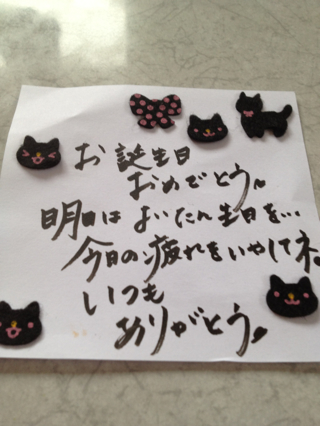 お誕生日
おめでとう。
明日はよいたん生日を…
今日の疲れをいやしてネ。
いつも
ありがとう。